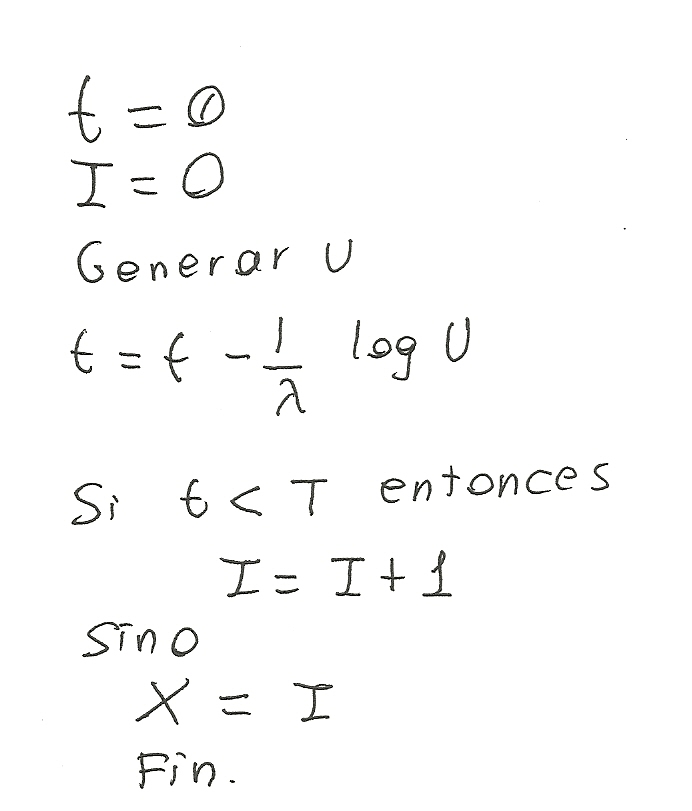 t = 0
I = 0
Generar U
t = t - 1/λ log U
Si t < T entonces
I = I + 1
Sino
X = I
Fin.